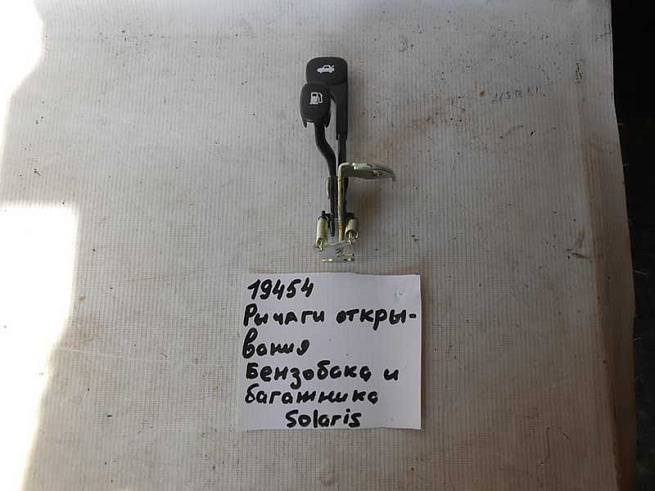 19454
Рычаги откры-
вания
Бензобака и
багажника
Solaris